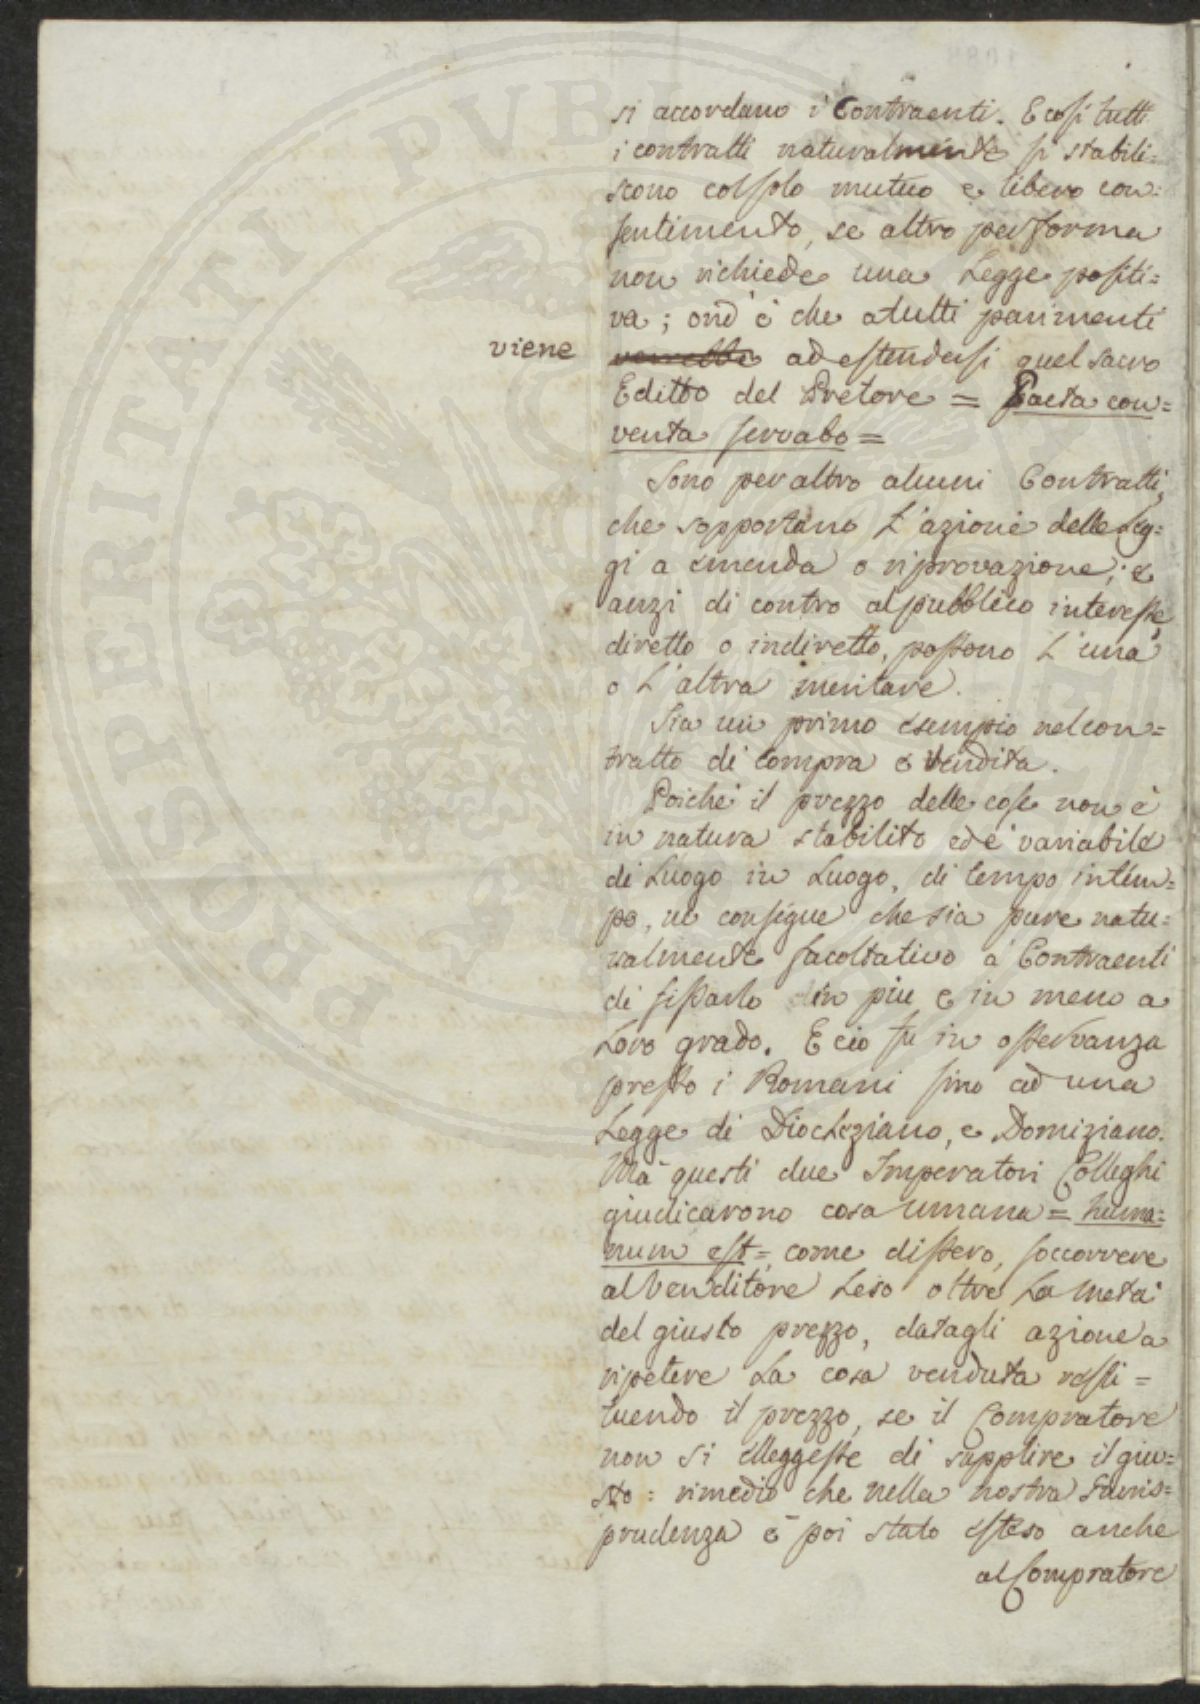 PROSPERITATI PVBLI
si accordano i Contraenti. E così tutti
i contratti naturalmente si stabili=
scono col solo mutuo e libero con=
sentimento, se altro per forma
non richiede una Legge positi=
va; ond'è che a tutti parimenti
viene
ad estendersi quel sacro
Editto del Pretore = Pacta con=
venta servabo =
Sono per altro alcuni Contratti,
che sopportano l'azione delle Leg=
gi a emenda o riprovazione; e
anzi di contro al pubblico interesse,
diretto o indiretto, possono l'una
o l'altra meritare.
Sia un primo esempio nel con=
tratto di compra e vendita.
Poiché il prezzo delle cose non è
in natura stabilito ed è variabile
di Luogo in Luogo, di tempo in tem=
po, ne consigue che sia pure natu=
ralmente facoltativo a' Contraenti
di fissarlo in piu e in meno a
Loro grado. E ciò fu in osservanza
presso i Romani sino ad una
Legge di Diocleziano, e Domiziano.
Mà questi due Imperatori Colleghi
giudicarono cosa umana = huma=
num est =, come dissero, soccorrere
al Venditore Leso oltre La metà
del giusto prezzo, datagli azione a
ripetere La cosa venduta resti=
tuendo il prezzo, se il Compratore
non si elleggesse di supplire il giu=
sto: rimedio che nella nostra Giuris=
prudenza è poi stato esteso anche
al Compratore